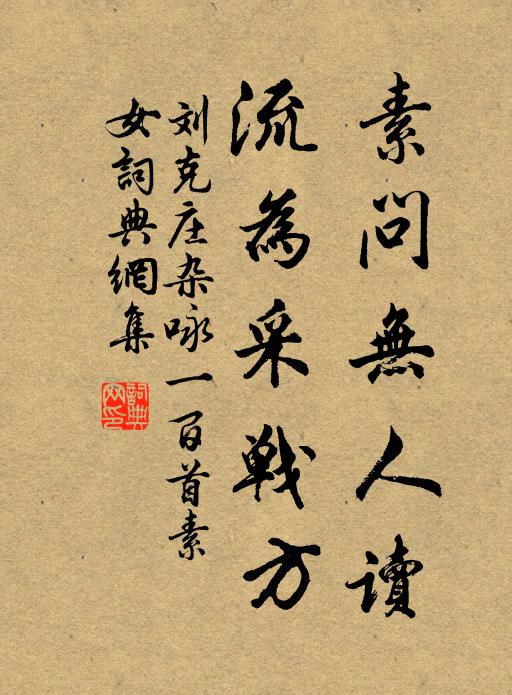 素問無人讀
流為采戦方
刘克庄杂咏一百首素
女詞典網集
詞典
网印